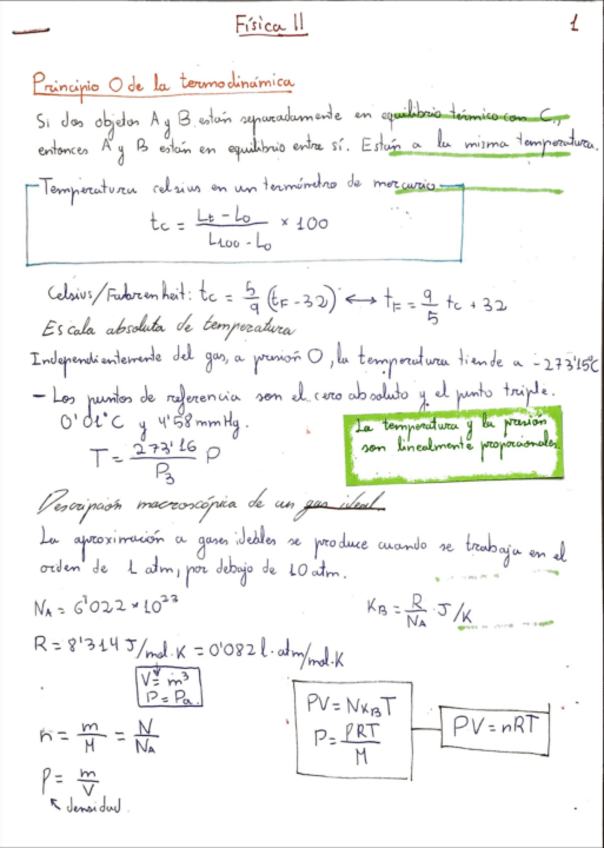 Física II
1
Principio 0 de la termodinámica
Si dos objetos A y B están separadamente en equilibrio térmico con C,
entonces A y B están en equilibrio entre sí. Están a la misma temperatura.
Temperatura celsius en un termómetro de mercurio
tc = (Lt - L0) / (L100 - L0) × 100
Celsius/Fahrenheit: tc = 5/9 (tF - 32) ↔ tF = 9/5 tc + 32
Escala absoluta de temperatura
Independientemente del gas, a presión 0, la temperatura tiende a -273'15ºC
- Los puntos de referencia son el cero absoluto y el punto triple.
0'01ºC y 4'58 mmHg.
La temperatura y la presión
son linealmente proporcionales
T = 273'16/P3 P
Descripción macroscópica de un gas ideal
La aproximación a gases ideales se produce cuando se trabaja en el
orden de 1 atm, por debajo de 10 atm.
NA = 6'022 × 10^23
KB = R/NA · J/K
R = 8'314 J/mol·K = 0'082 l·atm/mol·K
V = m³
P = Pa
PV = NKBT
P = ρRT/M
PV = nRT
n = m/M = N/NA
ρ = m/V
densidad